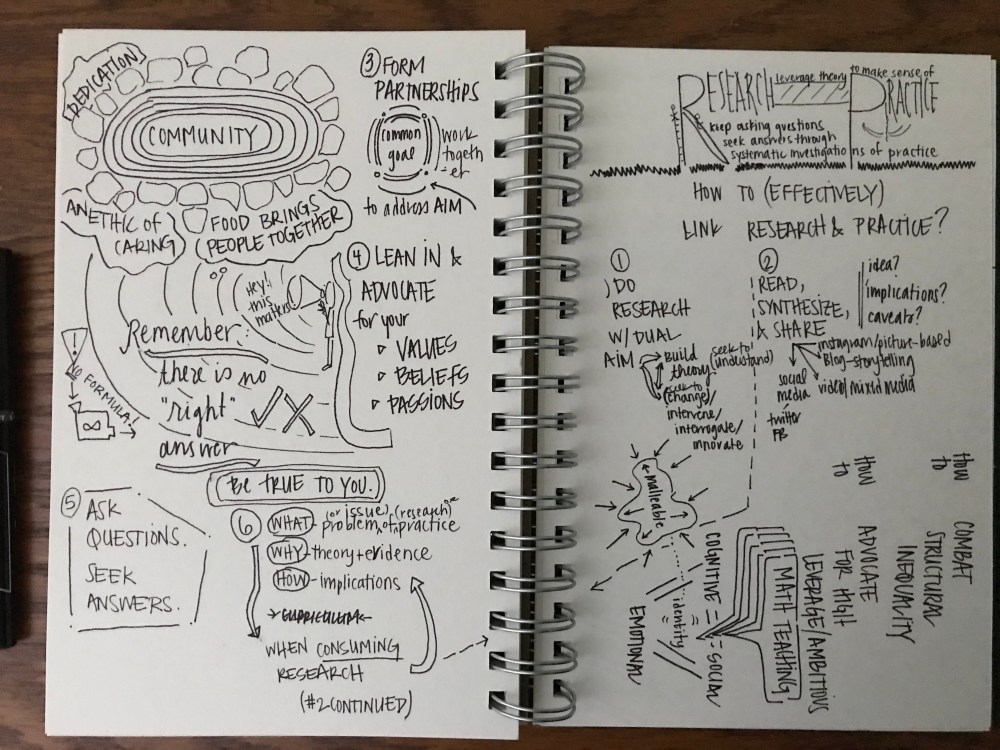 DEDICATION
COMMUNITY
AN ETHIC OF
CARING
FOOD BRINGS
PEOPLE TOGETHER
③ FORM
PARTNERSHIPS
common
goal
work
togeth
-er
to address AIM
④ LEAN IN &
ADVOCATE
for your
VALUES
BELIEFS
PASSIONS
Hey!
this
matters!
Remember:
there is no
"right"
answer
NO FORMULA!
∞
BE TRUE TO YOU.
⑤ ASK
QUESTIONS.
SEEK
ANSWERS.
⑥ WHAT - (or issue) (research)
problem of practice
WHY - theory + evidence
HOW - implications
CURRICULUM
WHEN CONSUMING
RESEARCH
(#2 CONTINUED)
RESEARCH leverage theory to make sense of PRACTICE
keep asking questions
seek answers through
systematic investigations of practice
HOW TO (EFFECTIVELY)
LINK RESEARCH & PRACTICE?
①
DO
RESEARCH
W/ DUAL
AIM
Build
theory (seek to
understand)
(seek to
change)/
intervene/
interrogate/
innovate
②
READ,
SYNTHESIZE,
& SHARE
idea?
implications?
caveats?
instagram/picture-based
Blog-storytelling
video/mixed media
social
media
twitter
FB
malleable
identity
COGNITIVE
SOCIAL
EMOTIONAL
MATH TEACHING
HOW
TO
ADVOCATE
FOR HIGH
LEVERAGE/AMBITIOUS
HOW
TO
COMBAT
STRUCTURAL
INEQUALITY